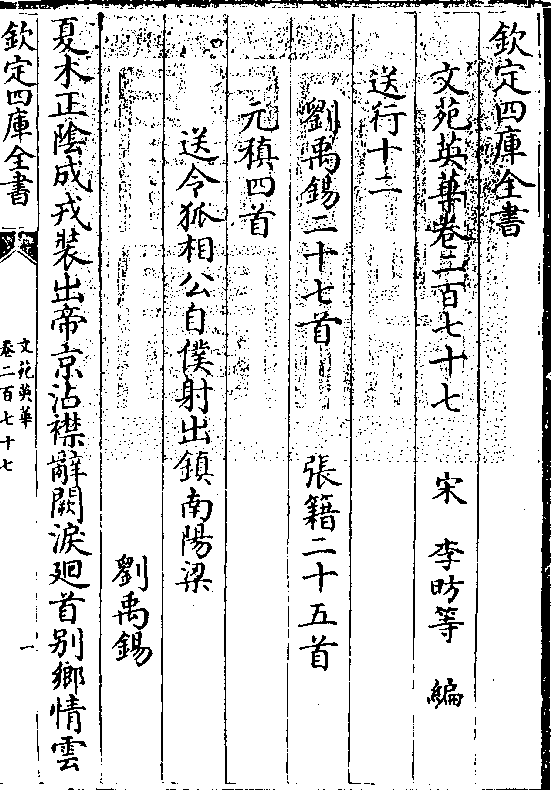 欽定四庫全書
文苑英華卷二百七十七 宋 李昉等 編
送行十二
劉禹錫二十七首 張籍二十五首
元稹四首
送令狐相公自僕射出鎮南陽梁
劉禹錫
夏木正陰成戎裝出帝京沾襟辭闕淚廻首别鄉情雲
欽定四庫全書
文苑英華
卷二百七十七
一